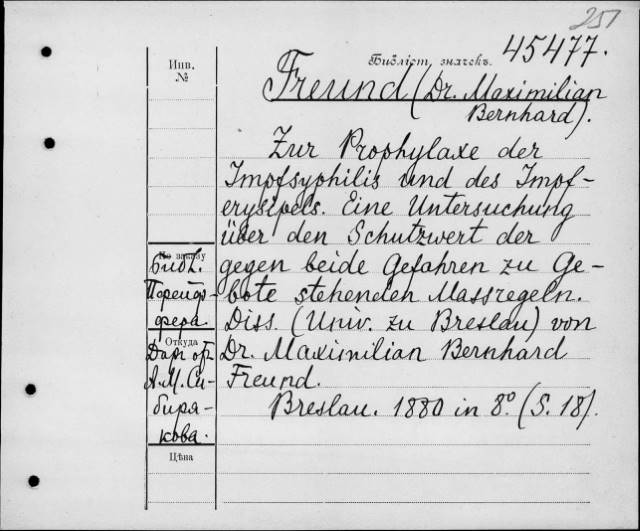 251
Инв.
№
Библіот. значекъ.
45477.
Freund (Dr. Maximilian
Bernhard).
Zur Prophylaxe der
Impfsyphilis und des Impf-
erysipels. Eine Untersuchung
über den Schutzwert der
gegen beide Gefahren zu Ge-
bote stehenden Massregeln.
Diss. (Univ. zu Breslau) von
Dr. Maximilian Bernhard
Freund.
Breslau. 1880 in 8° (S. 18).
По заказу
Библ.
Порейдр-
фера.
Откуда
Даръ отъ
А. М. Си-
биря-
кова.
Цѣна